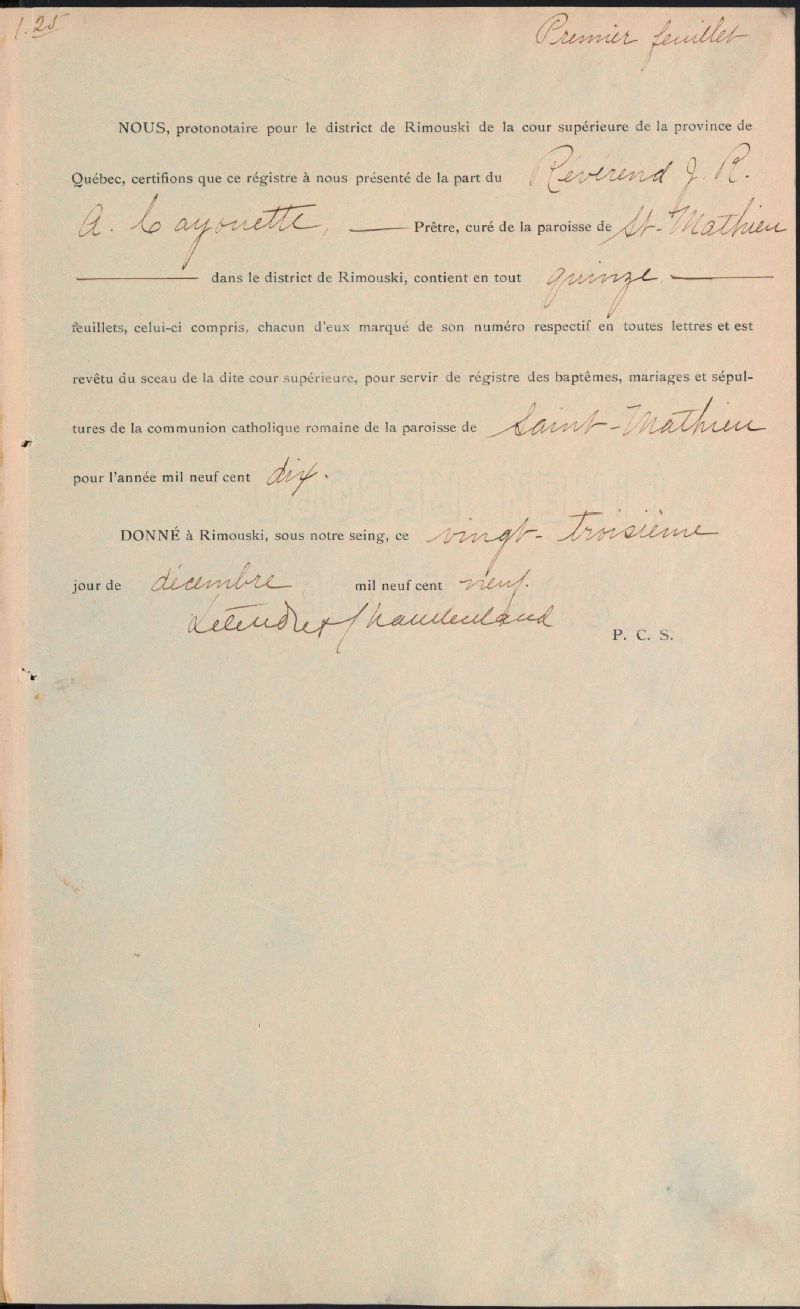 1.25
Premier feuillet
NOUS, protonotaire pour le district de Rimouski de la cour supérieure de la province de
Québec, certifions que ce régistre à nous présenté de la part du Révérend J. R.
A. Cayouette, Prêtre, curé de la paroisse de St-Mathieu
dans le district de Rimouski, contient en tout quinze
feuillets, celui-ci compris, chacun d'eux marqué de son numéro respectif en toutes lettres et est
revêtu du sceau de la dite cour supérieure, pour servir de régistre des baptêmes, mariages et sépul-
tures de la communion catholique romaine de la paroisse de Saint-Mathieu
pour l'année mil neuf cent dix.
DONNÉ à Rimouski, sous notre seing, ce vingt-troisième
jour de décembre, mil neuf cent neuf.
Letendre & Chamberland
P. C. S.